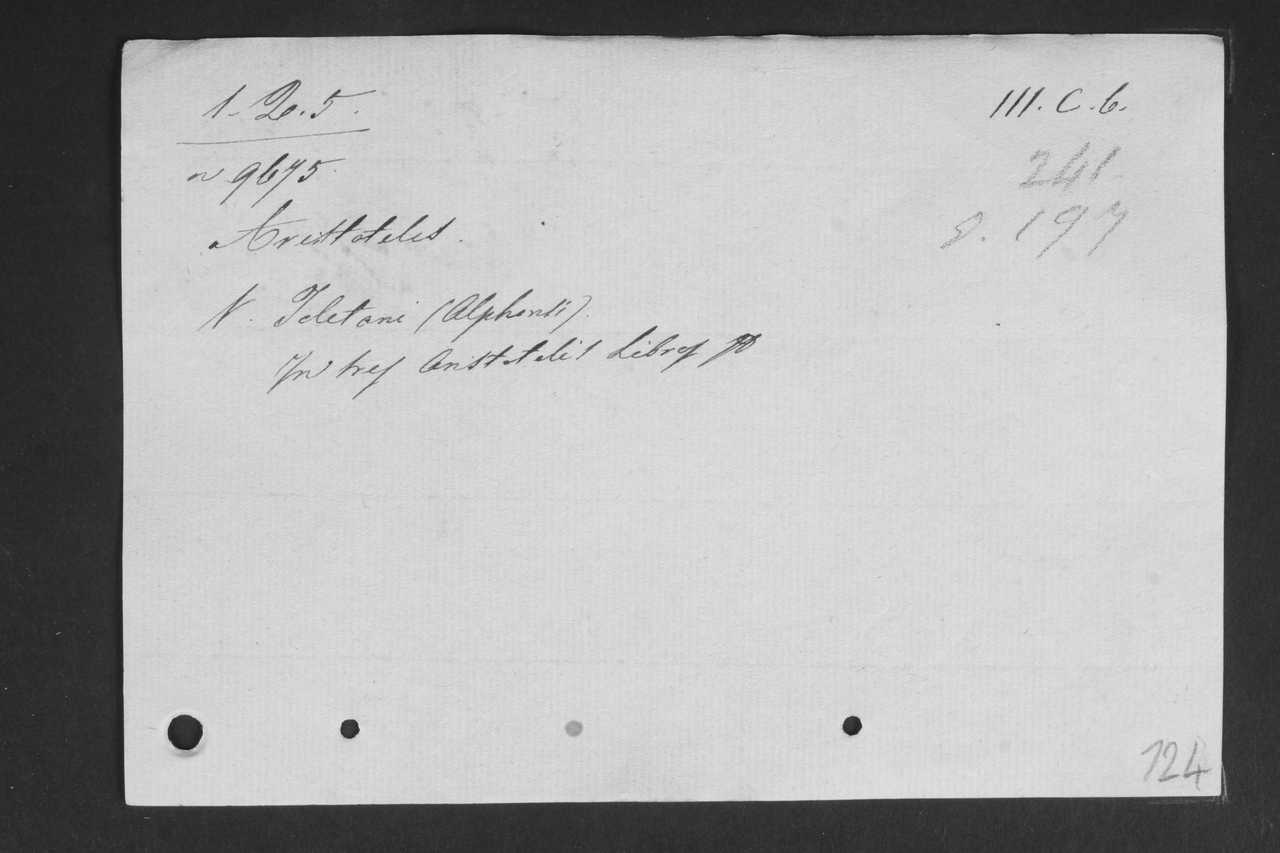 1. Q. 5.
III. C. 6.
n 9675.
241.
Aristoteles.
8. 197
V. Toletani (Alphonsi).
In tres Aristotelis Libros
124